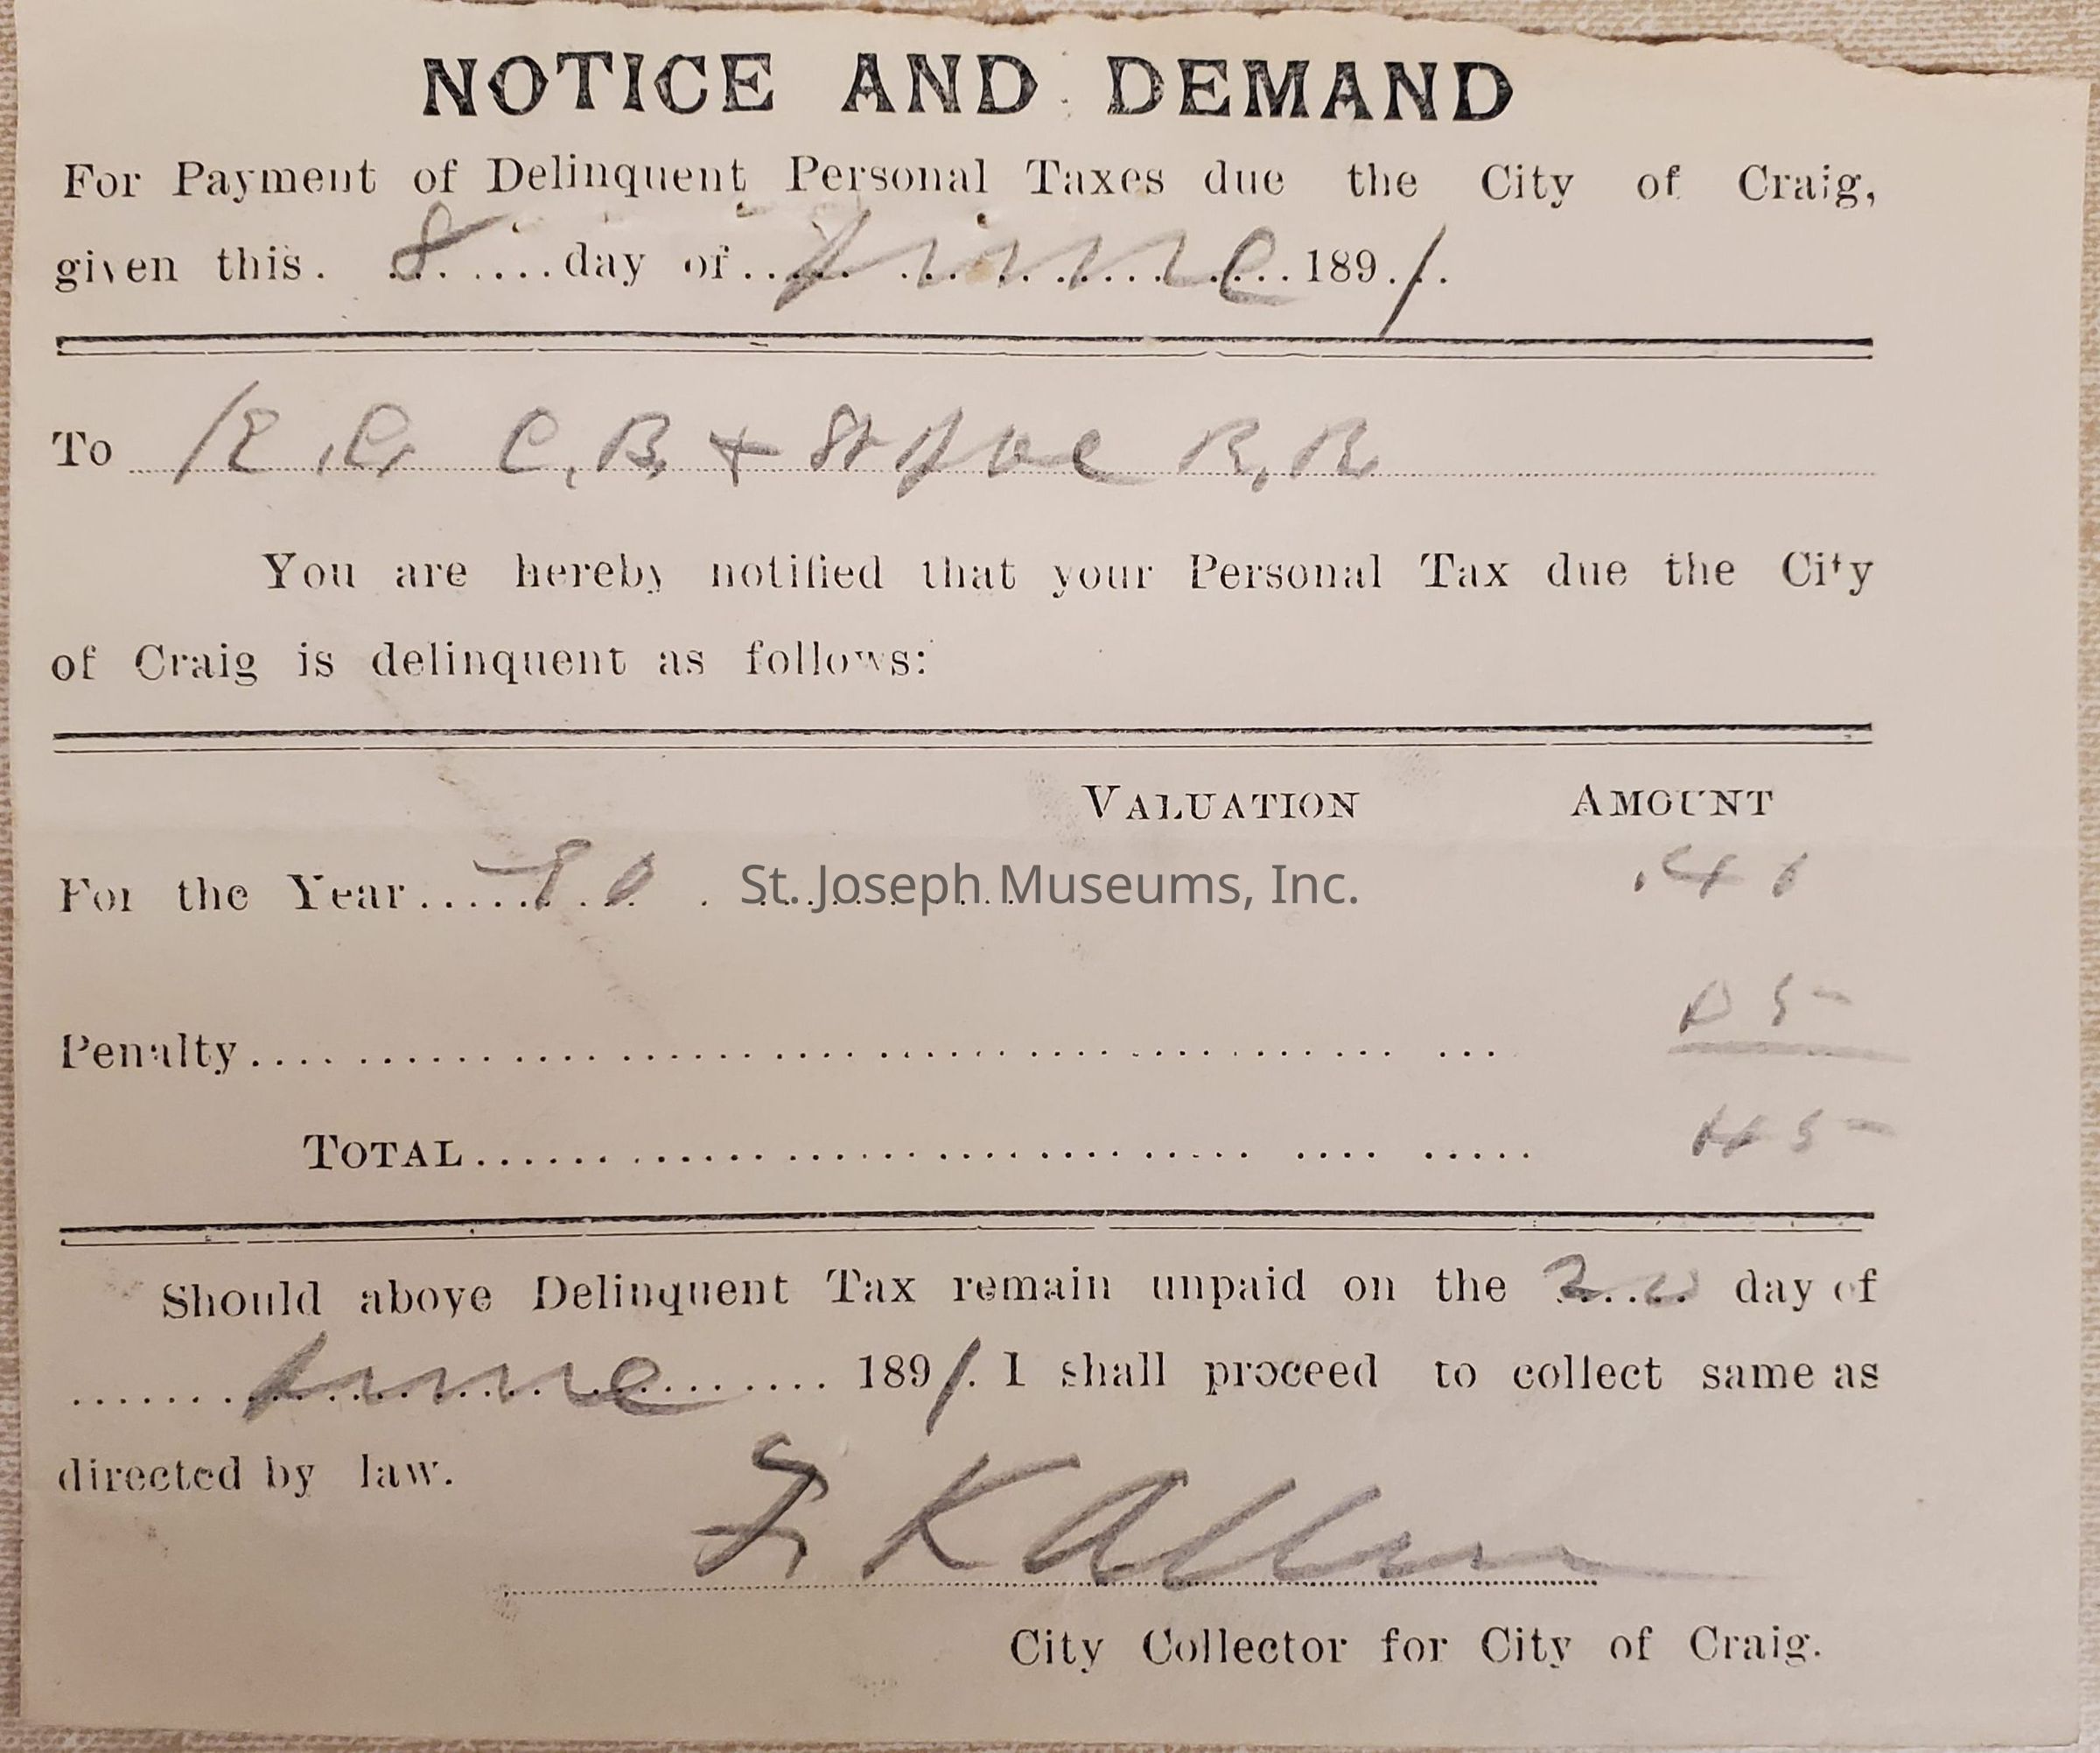 NOTICE AND DEMAND
For Payment of Delinquent Personal Taxes due the City of Craig,
given this. 8 ....day of.. June ...1891.
To K.C. C.B. & St Joe R.R.
You are hereby notified that your Personal Tax due the City
of Craig is delinquent as follows:
VALUATION AMOUNT
For the Year..... 90 .40
St. Joseph Museums, Inc.
Penalty.... 05
TOTAL.... 45
Should above Delinquent Tax remain unpaid on the 20 day of
....... June ....... 1891. I shall proceed to collect same as
directed by law.
K Allen
City Collector for City of Craig.